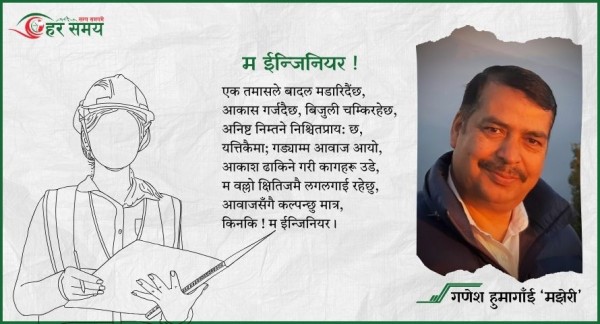 हर समय
म ईन्जिनियर !
एक तमासले बादल मडारिदैंछ,
आकास गर्जदैछ, बिजुली चम्किरहेछ,
अनिष्ट निम्तने निश्चितप्राय: छ,
यत्तिकैमा; गड्याम्म आवाज आयो,
आकाश ढाकिने गरी कागहरू उडे,
म वल्लो क्षितिजमै लगलगाई रहेछु,
आवाजसँगै कल्पन्छु मात्र,
किनकि ! म ईन्जिनियर ।
गणेश हुमागाँई ‘मझेरी’